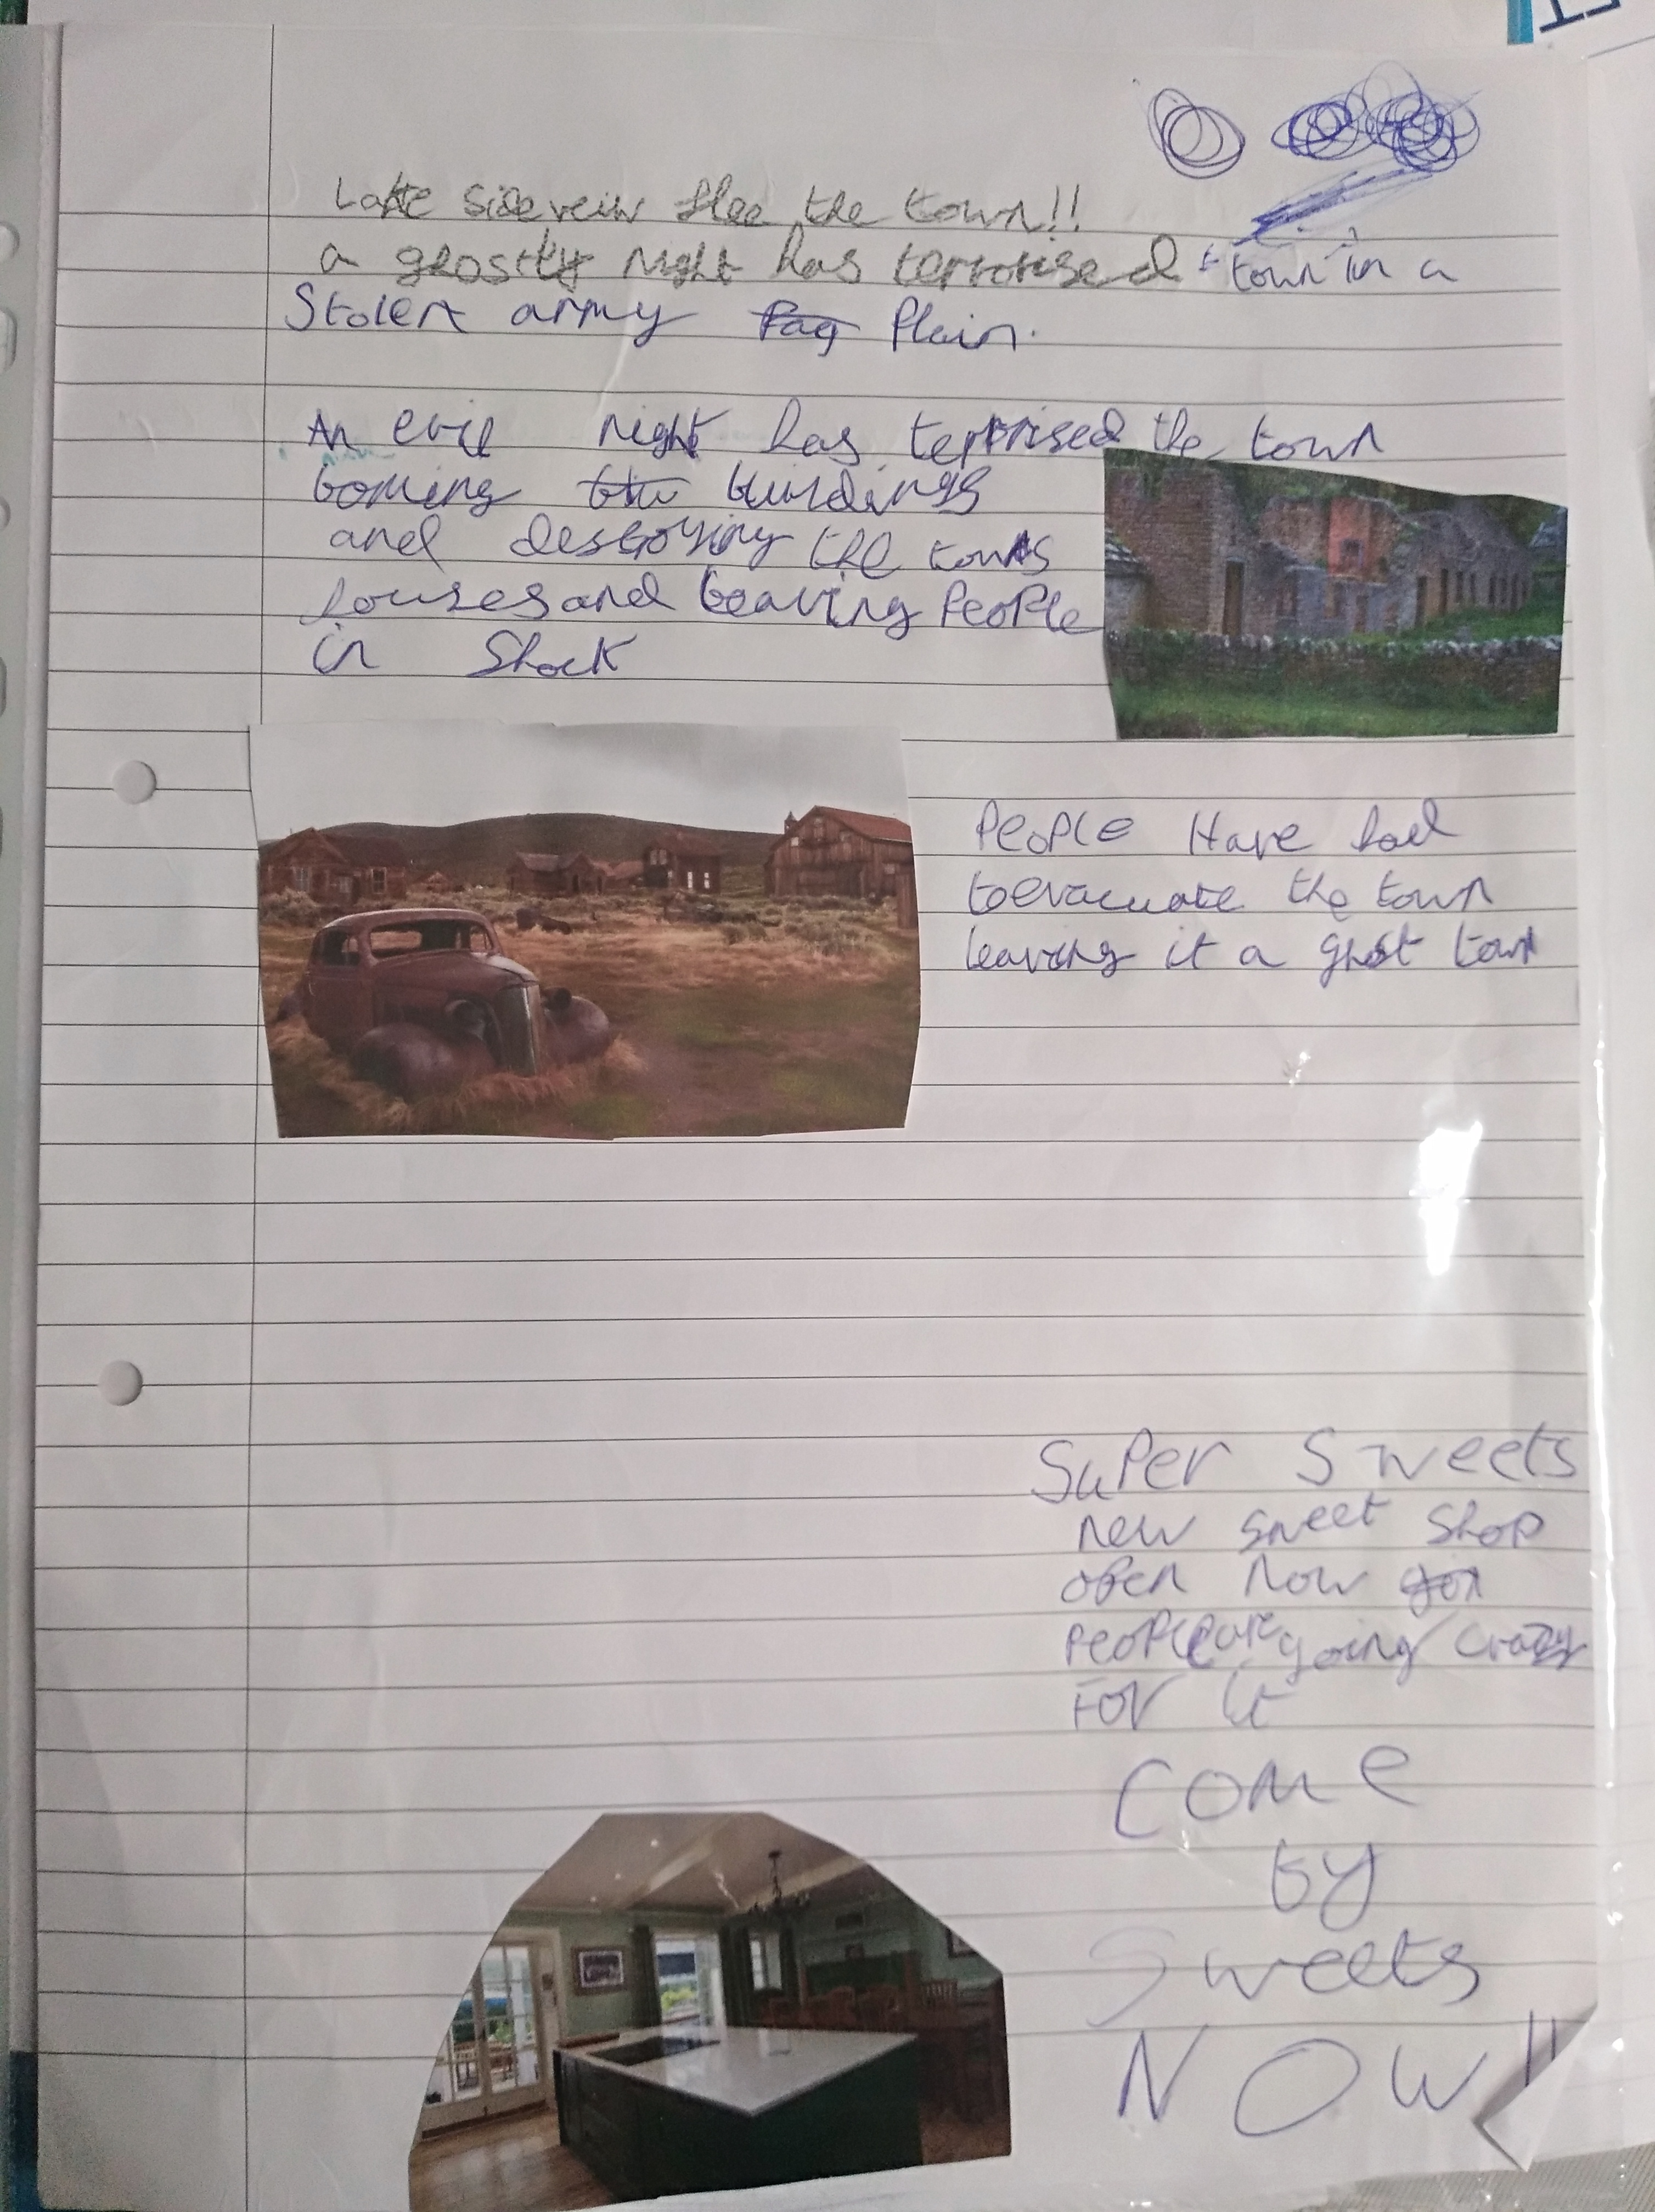 Lake side veiw flee the town!!
a ghostly night has terrorised town in a
Stolen army Plain.
An evil night has terrrised the town
boming buildings
and destoying the towns
houses and leaving People
in Shock
People Have had
to evacuate the town
leaving it a ghost town
Super Sweets
new sweet shop
open now
People are going crazy
For it
COME
by
Sweets
NOW!!